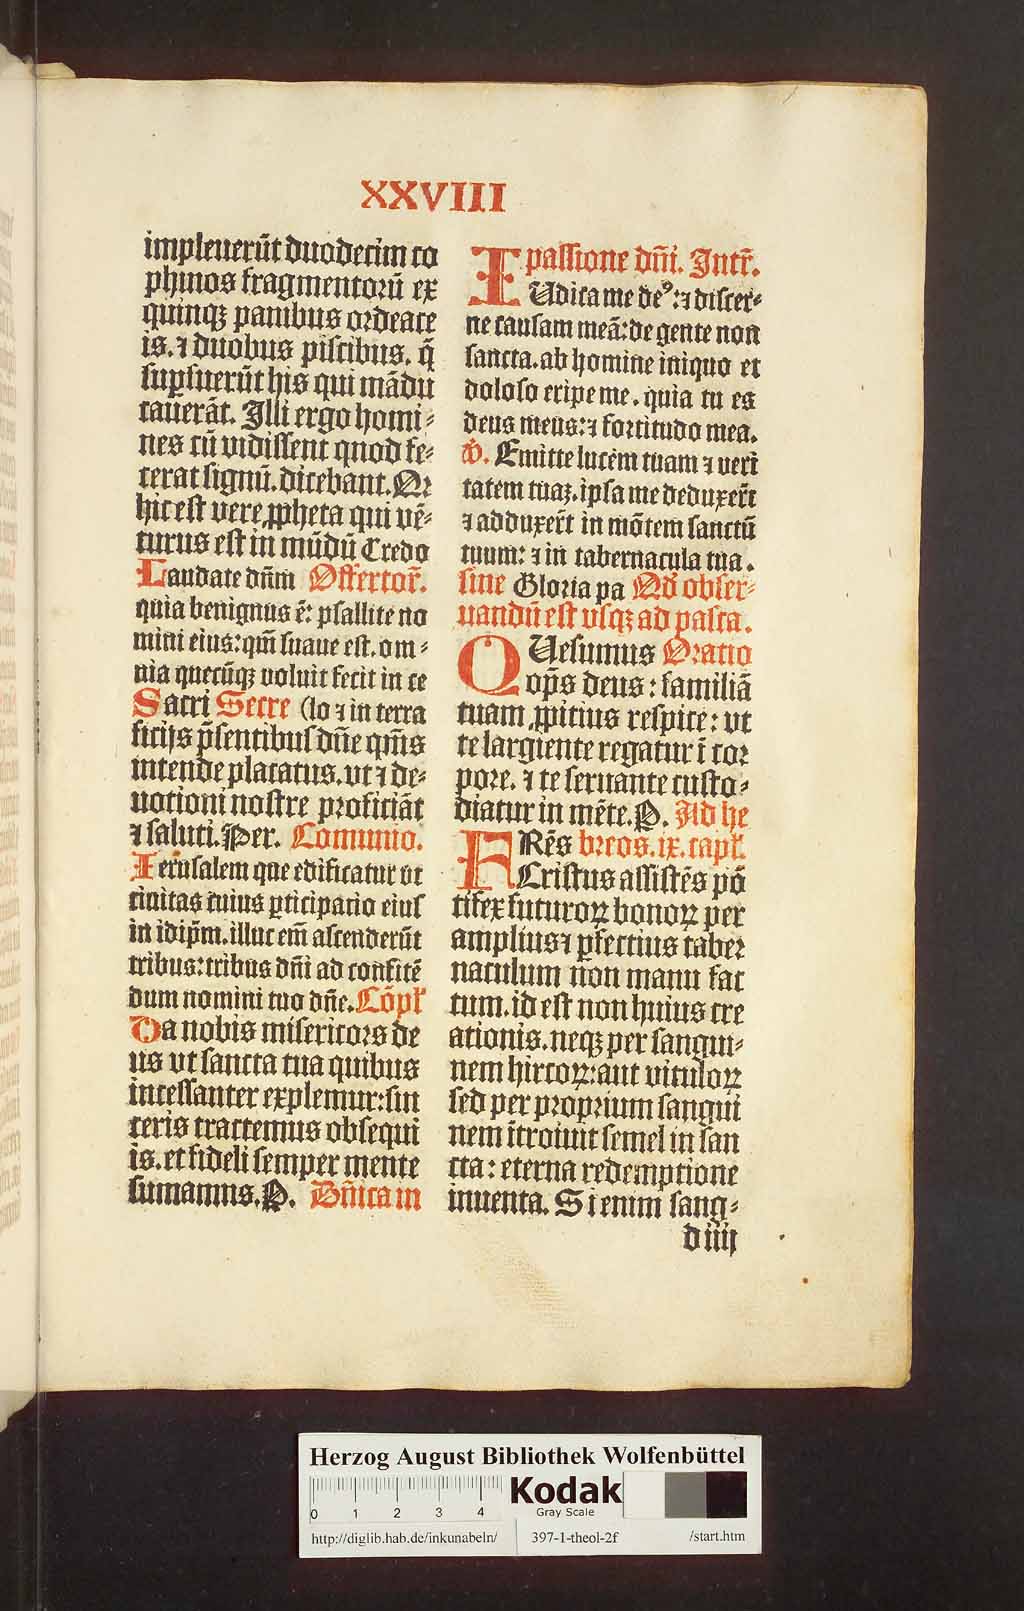 XXVIII
impleuerūt duodecim co
phinos fragmentorū ex
quinqꝫ panibus ordeace
is. ⁊ duobus piscibus. q̄
suꝑfuerūt his qui mādu
cauerāt. Illi ergo homi⸗
nes cū vidissent quod fe⸗
cerat signū. dicebant. Qꝛ
hic est vere ꝓpheta qui vē⸗
turus est in mūdū Credo
Laudate dn̄m Offertor̄.
quia benignus ē: psallite no
mini eius: qm̄ suaue est. om⸗
nia quecūqꝫ voluit fecit in ce
Sacri Secre (lo ⁊ in terra
ficijs p̄sentibus dn̄e qm̄s
intende placatus. vt ⁊ de⸗
uotioni nostre proficiāt
⁊ saluti. Per. Comunio.
Ierusalem que edificatur vt
ciuitas cuius ꝑticipatio eius
in idip̄m. illuc em̄ ascenderūt
tribus: tribus dn̄i ad confitē
dum nomini tuo dn̄e. Cōpl̄
Da nobis misericors de
us vt sancta tua quibus
incessanter explemur: sin
ceris tractemus obsequi
is. et fideli semper mente
sumamus. P. Dn̄ica in
passione dn̄i. Intr̄.
IUdica me deꝰ: ⁊ discer⸗
ne causam meā: de gente non
sancta. ab homine iniquo et
doloso eripe me. quia tu es
deus meus: ⁊ fortitudo mea.
Ps̄. Emitte lucem tuam ⁊ veri
tatem tuaꝫ. ipsa me deduxer̄t
⁊ adduxer̄t in mōtem sanctū
tuum: ⁊ in tabernacula tua.
sine Gloria pa Qd̄ obser⸗
uandū est vsqꝫ ad pasca.
QUesumus Oratio
op̄s deus: familiā
tuam ꝓpitius respice: vt
te largiente regatur ī cor
pore. ⁊ te seruante custo⸗
diatur in mēte. P. Ad he
FRēs breos. ix. capl̄.
Cristus assistēs pō
tifex futuroꝝ bonoꝝ per
amplius ⁊ ꝑfectius taber
naculum non manu fac
tum. id est non huius cre
ationis. neqꝫ per sangui⸗
nem hircoꝝ: aut vituloꝝ
sed per proprium sangui
nem ītroiuit semel in san
cta: eterna redemptione
inuenta. Si enim sang⸗
d iiij
Herzog August Bibliothek Wolfenbüttel
0 1 2 3 4
Kodak
Gray Scale
http://diglib.hab.de/inkunabeln/ 397-1-theol-2f /start.htm